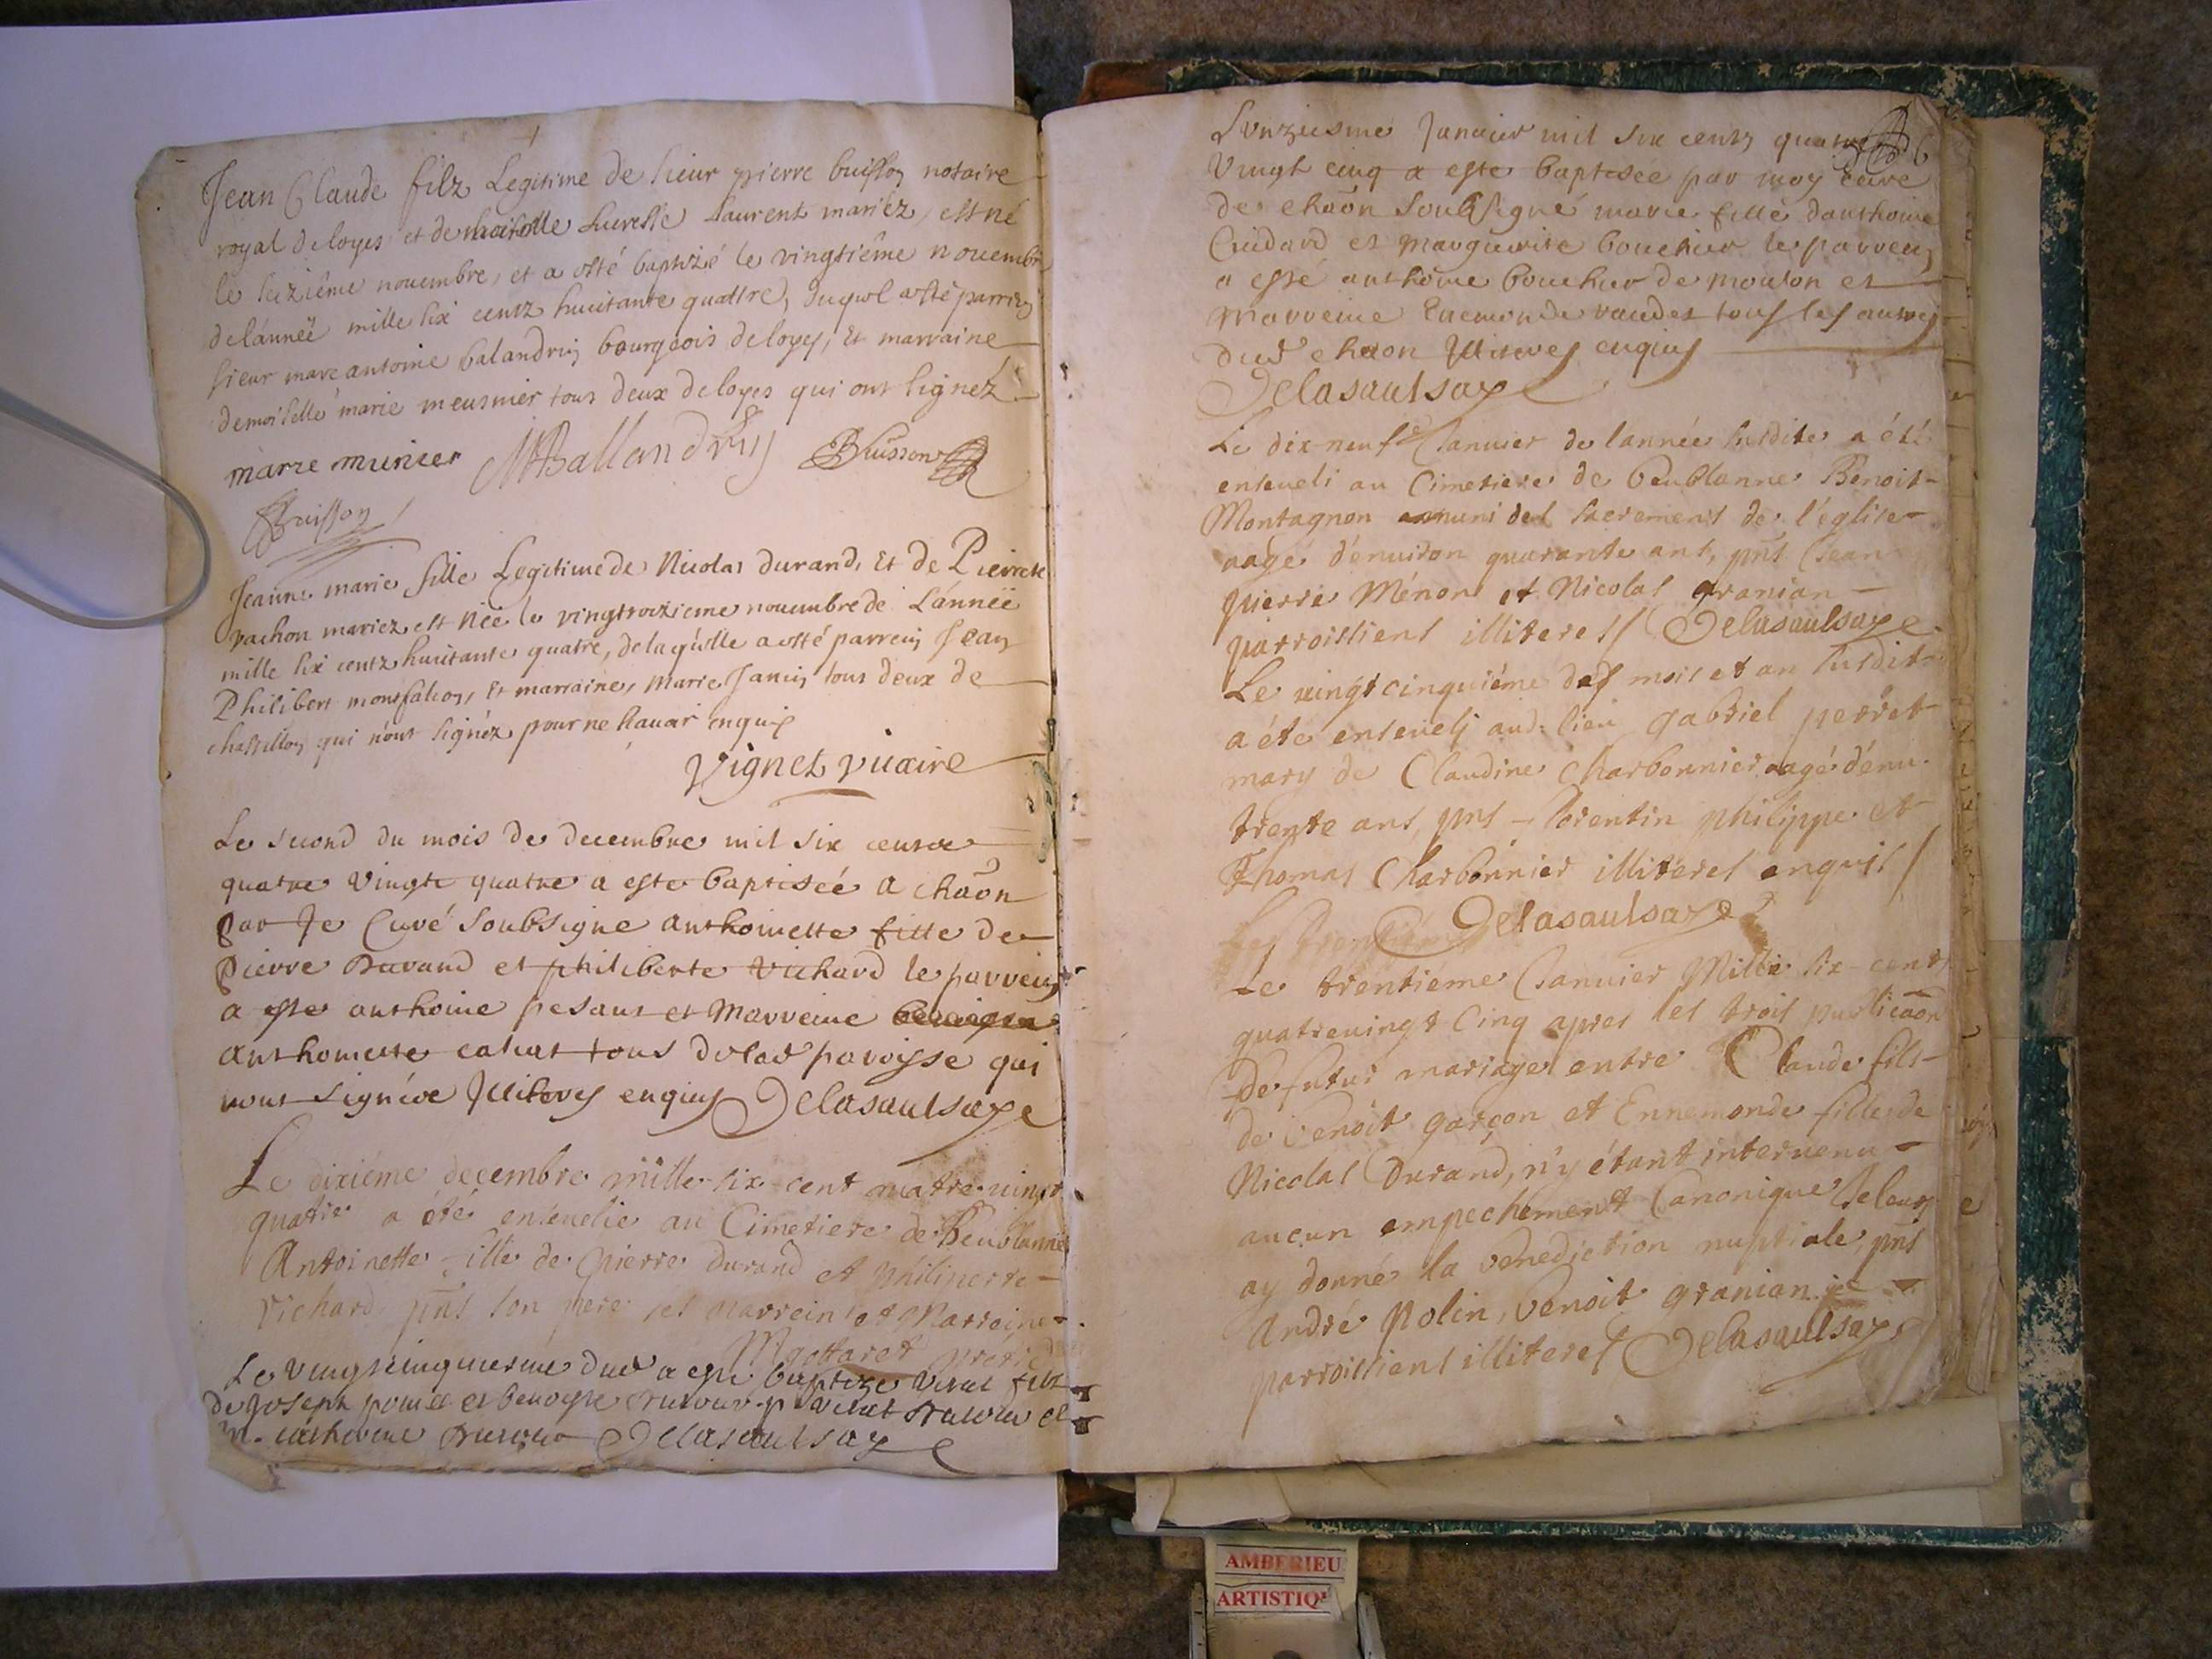 Jean Claude filz Legitime de sieur pierre buisson notaire
royal de loyes et de lucresse Laurent mariéz, est né
le seizième nouembre, et a esté baptizé le vingtième nouembre
de lánnéë mille six centz huictante quattre, duquel a esté parrein
sieur marc antoine balandrin bourgeois de loyes, Et marraine
demoiselle marie meusnier tous deux de loyes qui ont signéz
marie munier MABallandrin Buisson
Buisson
Jeanne marie fille Legitime de Nicolas durand, Et de Pierrete
vachon mariez est Née le vingtroizieme nouembre de Lánnéë
mille six centz huictante quatre, de laquelle a esté parrein Jean
Philibert montfalcon, Et marraine, marie Janin tous deux de
chastillon qui nónt signéz pour ne sauoir enquis
Vignet vicaire
Le second du mois de decembre mil six centz
quatre vingts quatre a este baptiseé a chaōn
par Je Curé soubsigne anthoinette fille de
pierre Durand et philiberte vichard le parrein
a este anthoine pesant et Marreine
anthoinette tous de lad paroisse qui
nont signéz Illiteres enquis Delasaulsaye
Le dixiéme decembre mille six-cent quatre-uingt
quatre a été enseuelie au Cimetiere de Beublanne
Antoinette fille de pierre durand et philiperte
Vichard pñs son pere ses parrein et Marreine
Mgottaret pretre
Le vingtcinquiesme dud a este baptize fils
de Joseph et p et
m. Delasaulsaye
Lunziesme Januier mil six cents quatre 6
Vingt cinq a este baptisée par moy Cure
de chaōn Soubsigné marie fille danthoine
Cuidard et Marguerite bouchier le parrein
a esté anthoine bouchier de moulon et
Marreine Enemonde tous les autres
dud chaon Illiteres enquis
Delasaulsaye
Le dix-neuf Januier de lannée susdite a été
enseueli au Cimetiere de Beublanne Benoit
Montagnon muni des sacrements de l'église
aagé d'enuiron quarante ans, pñs Jean
pierre Ménon et Nicolas granian
parroissiens illiteres / Delasaulsaye
Le uingtcinquiéme des mois et an susdit
a éte enseuelj aud. lieu gabriel perret
mary de Claudine Charbonnier aagé d'énu.
trente ans, pñs florentin philippe et
Thomas Charbonnier illiteres enquis /
Delasaulsaye
Le trentieme Januier Mille six-cents
quatreuingt Cinq apres les trois publicaōn
De futur mariage entre Claude fils
de benoit garçon et Ennemonde fille de
Nicolas Durand, n'y étant interuenu
aucun empechement Canonique Je leurs
ay donné la benediction nuptiale, pñs
André polin, benoit granian
parroissiens illiteres Delasaulsaye
AMBERIEU
ARTISTIQ